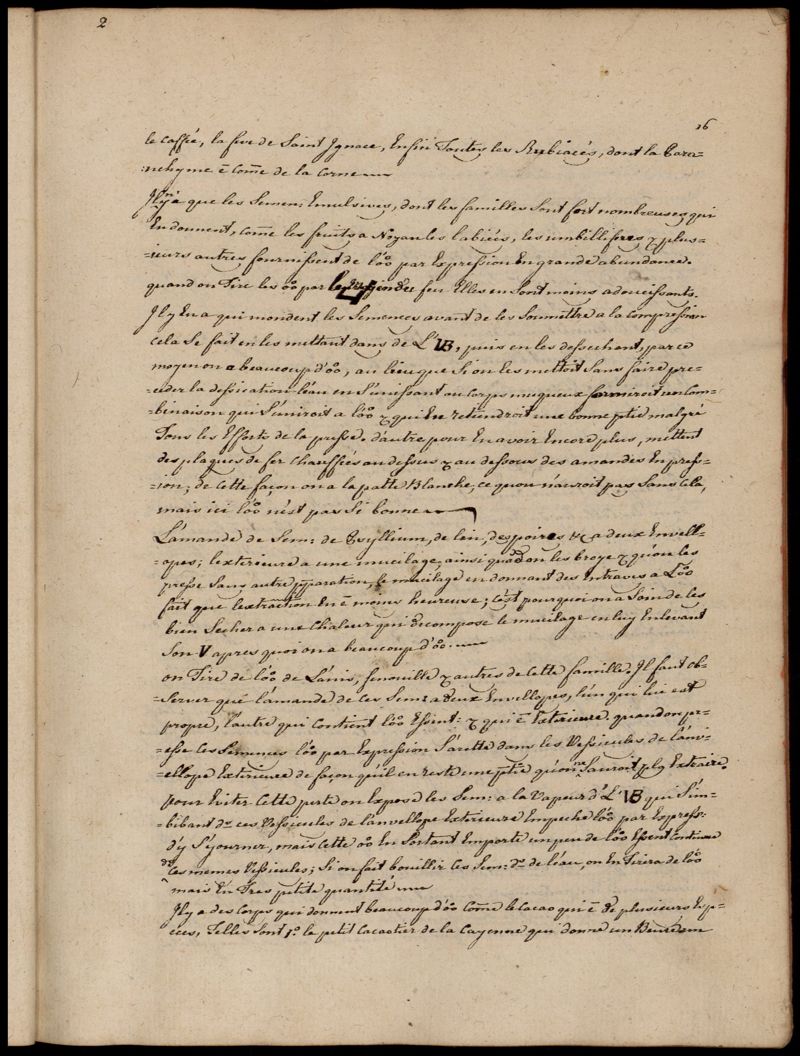 2
16
le Caffée, la feve de Saint Ignace, Enfin Toutes les Rubiacés, dont la Paren-
-nchyme ē Come de la Corne
Il n'y a que les Semen: Emulsives, dont les familles Sont fort nombreuses, qui
En donnent, Come les fruits a Noyau les labiées, les umbelliferes & plus-
-ieurs autres fournissent de l'oo par Expression En grande abundance.
quand on Tire les oo par le feu Elles en Sont moins adoucissants.
Il y En a qui mondent les Semences avant de les Soumettre a la Compression
Cela Se fait en les mettant dans de L'VB, puis en les dessechant, par ce
moyen on a beaucoup d'oo, au lieu que Si on les mettoit Sans faire pre-
ceder la dessication l'eau en S'unissant au Corps muqueux formeroit un Com-
-binaison qui S'uniroit a l'oo & qui En retiendroit une bonne ptie malgré
Tous les Efforts de la presse. d'autre pour En avoir Encore plus, mettent
des plaques de fer Chauffées au dessus & au dessous des amandes En pres-
-ion; de Cette façon on a la patte Blanche, ce qu'on n'auroit pas Sans Cela,
mais ici l'oo n'est pas Si bonne
L'amande de Sem: de Psyllium, de lin, des poires &c a deux Envell-
-opes; l'exterieure a une mucilage, ainsi quand on les broye & qu'on les
presse Sans autre pparation, le mucilage en donnant des Entraves a L'oo
fait que l'extraction En ē moins heureuse; C'est pourquoi on a Soin de les
bien Secher a une Chaleur qui decompose le mucilage en luy Enlevant
Son V apres quoi on a beaucoup d'oo.
on Tire de l'oo de L'anis, fenouille & autres de Cette famille. Il faut ob-
-Server que l'amande de Ces Sem: a deux Envellopes, l'un qui lui est
propre, l'autre qui Contient l'oo Essent: & qui ē Exterieure. quand on pr-
-esse Ces Semences l'oo par Expression S'arette dans les Vessicules de l'env-
-ellope Exterieure de façon qu'il en reste une ptie qu'on ne Sauroit plus Extraire.
pour Eviter Cette perte on Expose les Sem: a la Vapeur d'L'VB qui S'im-
-bibant ds Ces Vessicules de l'anvellope Exterieure Empeche l'oo par Express:
d'y Sejourner, mais Cette oo En Sortant Emporte un peu de l'oo Essent Contenue
ds Ces memes Vessicules; Si on fait bouillir Ces Sem: ds de l'eau, on En Tirera de l'oo
mais En Tres petite quantité
Il y a des Corps qui donnent beaucoup d'oo Come le Cacao qui ē de plusieurs Esp-
-eces, Telles Sont 1o. le petit Cacaotier de la Cayenne qui donne un